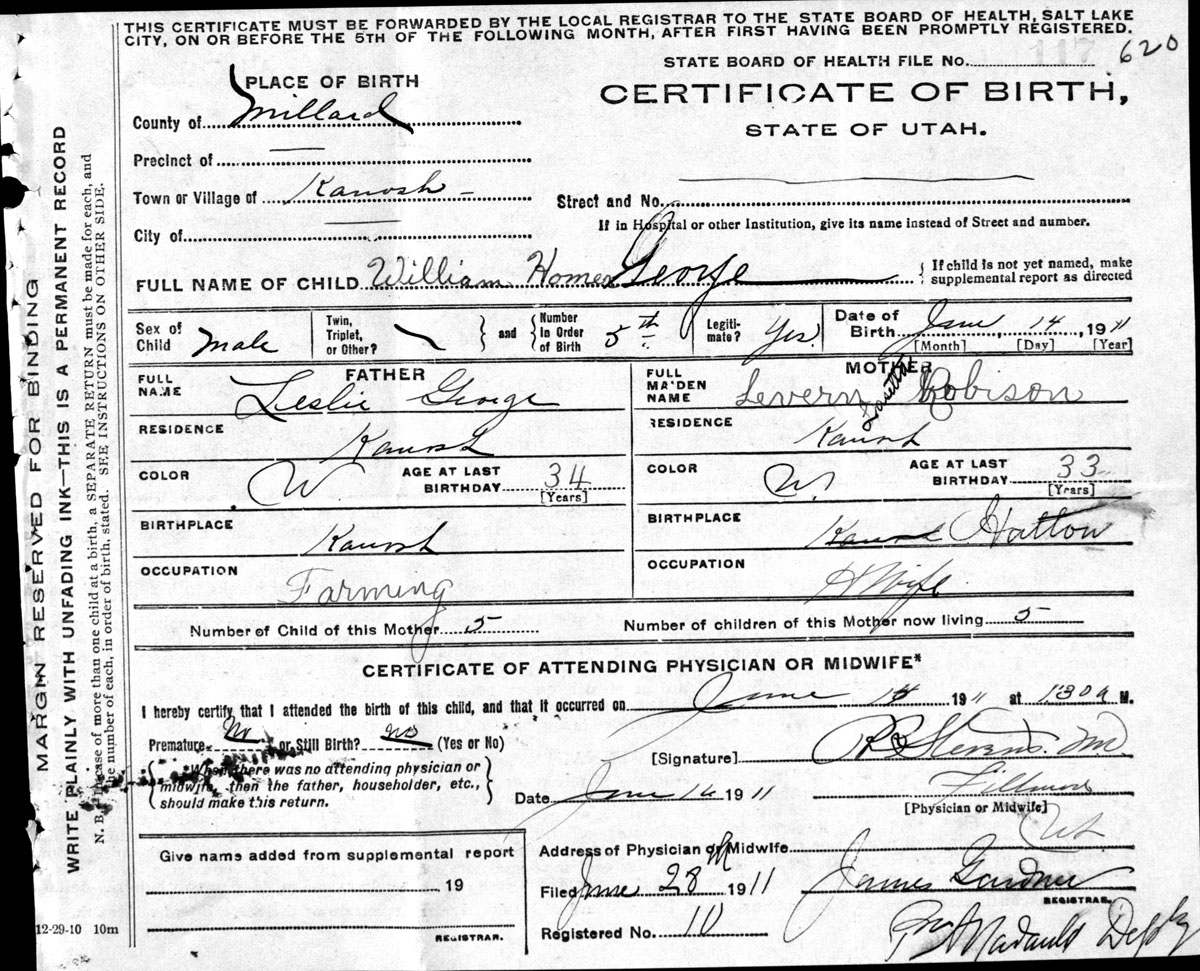 THIS CERTIFICATE MUST BE FORWARDED BY THE LOCAL REGISTRAR TO THE STATE BOARD OF HEALTH, SALT LAKE
CITY, ON OR BEFORE THE 5TH OF THE FOLLOWING MONTH, AFTER FIRST HAVING BEEN PROMPTLY REGISTERED.
STATE BOARD OF HEALTH FILE No. 117 620
CERTIFICATE OF BIRTH,
STATE OF UTAH.
PLACE OF BIRTH
County of Millard
Precinct of
Town or Village of Kanosh
City of
Street and No.
If in Hospital or other Institution, give its name instead of Street and number.
FULL NAME OF CHILD William Homer George
If child is not yet named, make
supplemental report as directed
Sex of Child Male
Twin, Triplet, or Other?
and Number in Order of Birth 5th
Legiti- mate? Yes.
Date of Birth June 14, 1911
[Month] [Day] [Year]
FATHER
FULL NAME Leslie George
RESIDENCE Kanosh
COLOR W
AGE AT LAST BIRTHDAY 34
[Years]
BIRTHPLACE Kanosh
OCCUPATION Farming
MOTHER
FULL MAIDEN NAME Levern Rosetta Robison
RESIDENCE Kanosh
COLOR W.
AGE AT LAST BIRTHDAY 33
[Years]
BIRTHPLACE Kanosh Hatton
OCCUPATION H Wife
Number of Child of this Mother 5
Number of children of this Mother now living 5
CERTIFICATE OF ATTENDING PHYSICIAN OR MIDWIFE*
I hereby certify that I attended the birth of this child, and that it occurred on June 14 1911 at 1 30 a M.
Premature No or Still Birth? no (Yes or No)
*When there was no attending physician or
midwife, then the father, householder, etc.,
should make this return.
[Signature] Stevens. MD
Date June 16 1911
Fillmore
[Physician or Midwife]
Ut
Address of Physician or Midwife
Give name added from supplemental report
19
REGISTRAR.
Filed June 28th 1911
James Gardner
REGISTRAR.
Registered No. 10
Depty
12-29-10 10m
MARGIN RESERVED FOR BINDING
WRITE PLAINLY WITH UNFADING INK—THIS IS A PERMANENT RECORD
N. B. In case of more than one child at a birth, a SEPARATE RETURN must be made for each, and
the number of each, in order of birth, stated. SEE INSTRUCTIONS ON OTHER SIDE.